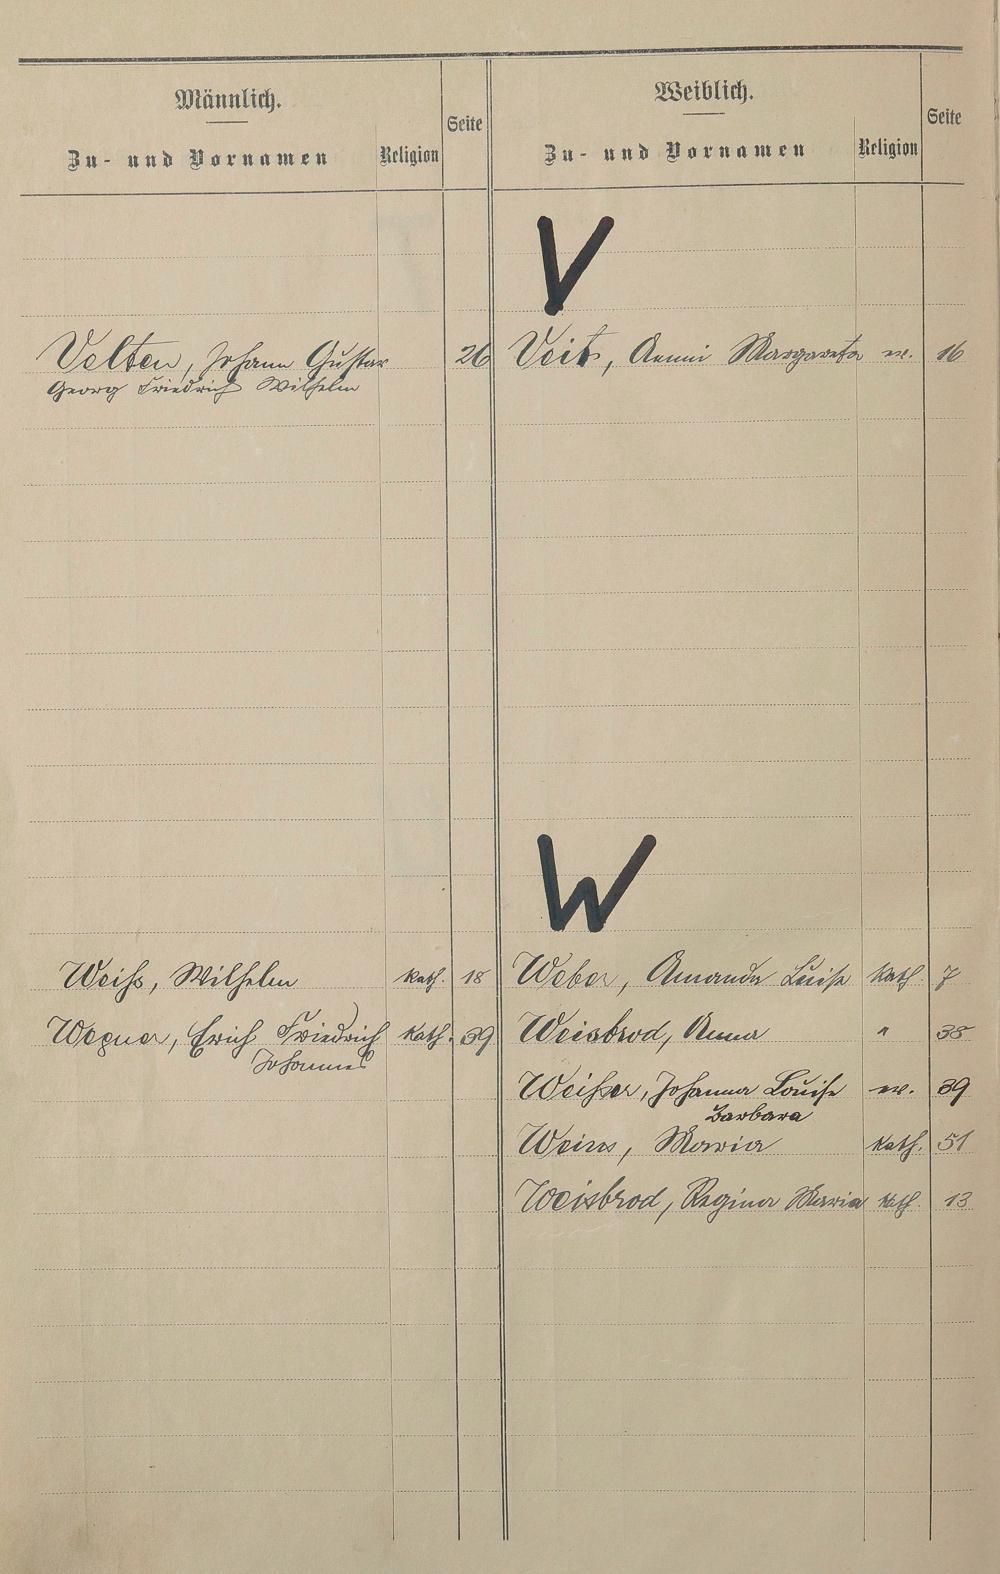 Männlich.
Zu- und Vornamen Religion Seite
Weiblich.
Zu- und Vornamen Religion Seite
V
Velten, Johann Gustav 26
Georg Friedrich Wilhelm
Veit, Anna Margareta ev. 16
W
Weihs, Wilhelm kath. 18
Wegner, Erich Friedrich kath. 39
Johannes
Weber, Amanda Luise kath. 7
Weisbrod, Anna " 38
Weihser, Johanna Louise ev. 39
Barbara
Maria kath. 51
Weisbrod, Regina Maria kath. 13